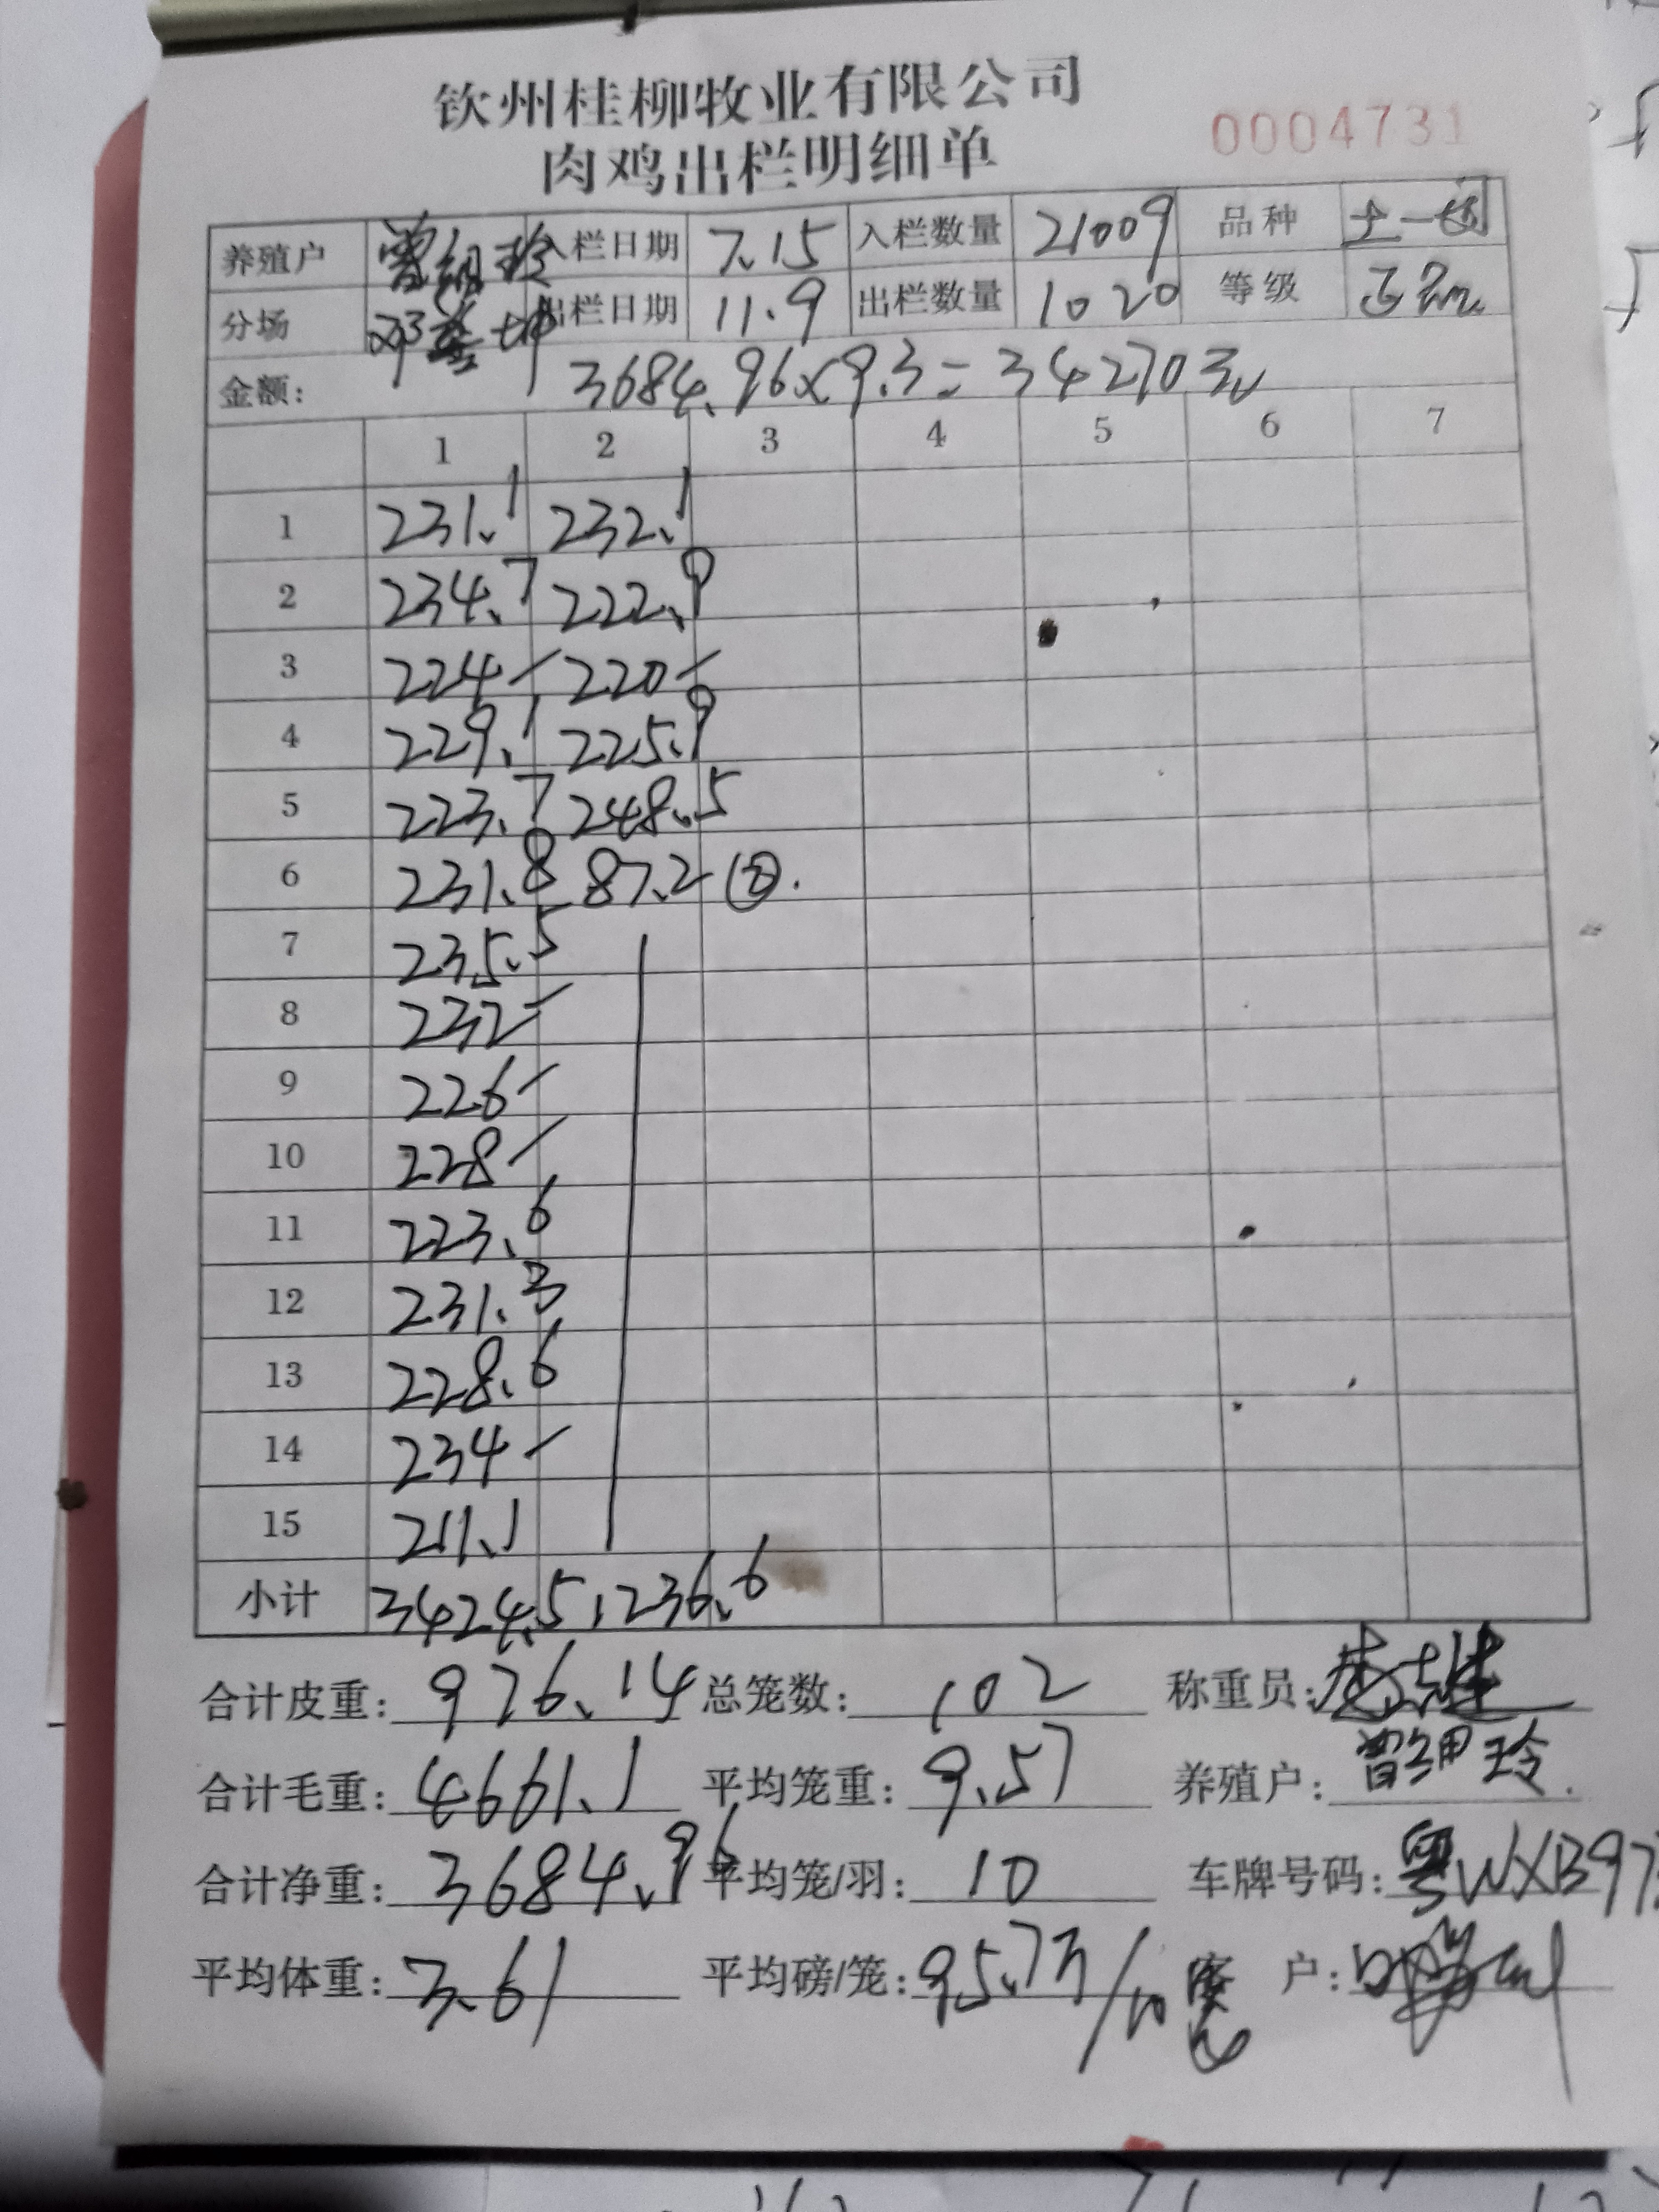 钦州桂柳牧业有限公司
肉鸡出栏明细单
0004731
养殖户 曾绍玲 入栏日期 7.15 入栏数量 21009 品种 土一
分场 邓 坤 出栏日期 11.9 出栏数量 1020 等级 正
金额: 3684.96×9.3=34270元
1 2 3 4 5 6 7
1 231.1 232.1
2 234.7 222.9
3 224- 220-
4 229.1 225.9
5 223.7 248.5
6 231.8 87.2 ②.
7 235.5
8 232-
9 226-
10 228-
11 223.6
12 231.3
13 228.6
14 234-
15 211.1
小计 3424.5 1236.6
合计皮重: 976.14 总笼数: 102 称重员:
合计毛重: 4661.1 平均笼重: 9.57 养殖户: 曾绍玲.
合计净重: 3684.96 平均笼/羽: 10 车牌号码: 粤WXB97
平均体重: 3.61 平均磅/笼: 95.7 /10 客户: